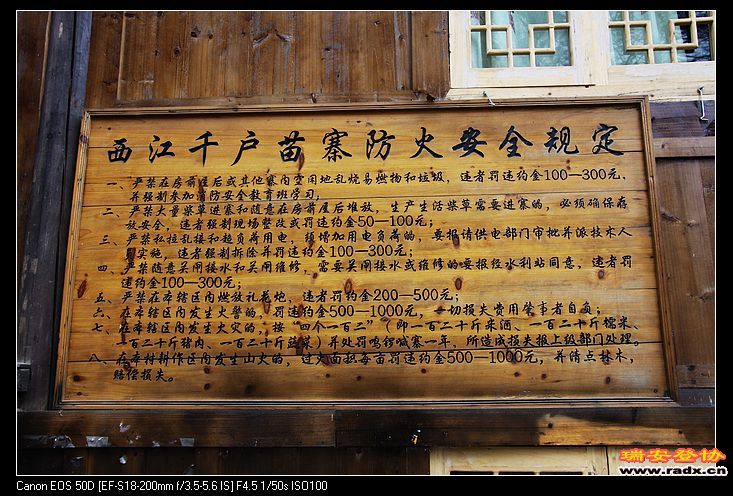 西江千户苗寨防火安全规定
一、严禁在房前屋后或其他寨内空闲地乱烧易燃物和垃圾，违者罚违约金100—300元，
并强制参加消防安全教育班学习；
二、严禁大量柴草进寨和随意在房前屋后堆放，生产生活柴草需要进寨的，必须确保存
放安全，违者强制现场整改或罚违约金50—100元；
三、严禁私拉乱接和超负荷用电，须增加用电负荷的，要报请供电部门审批并派技术人
员实施，违者强制拆除并罚违约金100—300元；
四、严禁随意关闸接水和关闸维修，需要关闸接水或维修的要报经水利站同意，违者罚
违约金100—300元；
五、严禁在本辖区内燃放礼花炮，违者罚约金200—500元；
六、在本辖区内发生火警的，罚违约金500—1000元，一切损失费用肇事者自负；
七、在本辖区内发生火灾的，按“四个一百二”（即一百二十斤米酒、一百二十斤糯米、
一百二十斤猪肉、一百二十斤蔬菜）并处罚鸣锣喊寨一年，所造成损失报上级部门处理。
八、在本村耕作区内发生山火的，过火面积每亩罚违约金500—1000元，并清点林木，
赔偿损失。
瑞安登协
www.radx.cn
Canon EOS 50D [EF-S18-200mm f/3.5-5.6 IS] F4.5 1/50s ISO100